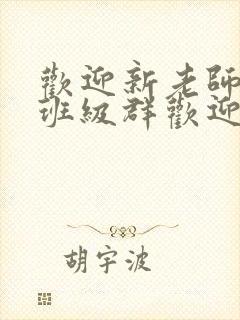 歡迎新老師
班級群歡迎
胡宇波